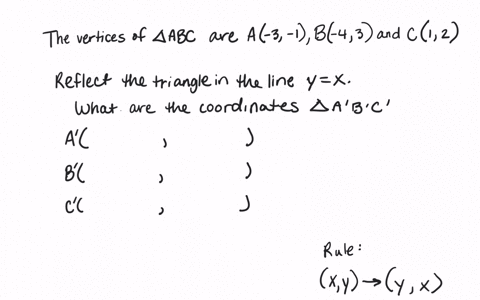 The vertices of △ABC are A(-3,-1), B(-4,3) and C(1,2)
Reflect the triangle in the line y=x.
What are the coordinates △A'B'C'
A'( , )
B'( , )
C'( , )
Rule:
(x,y)→(y,x)